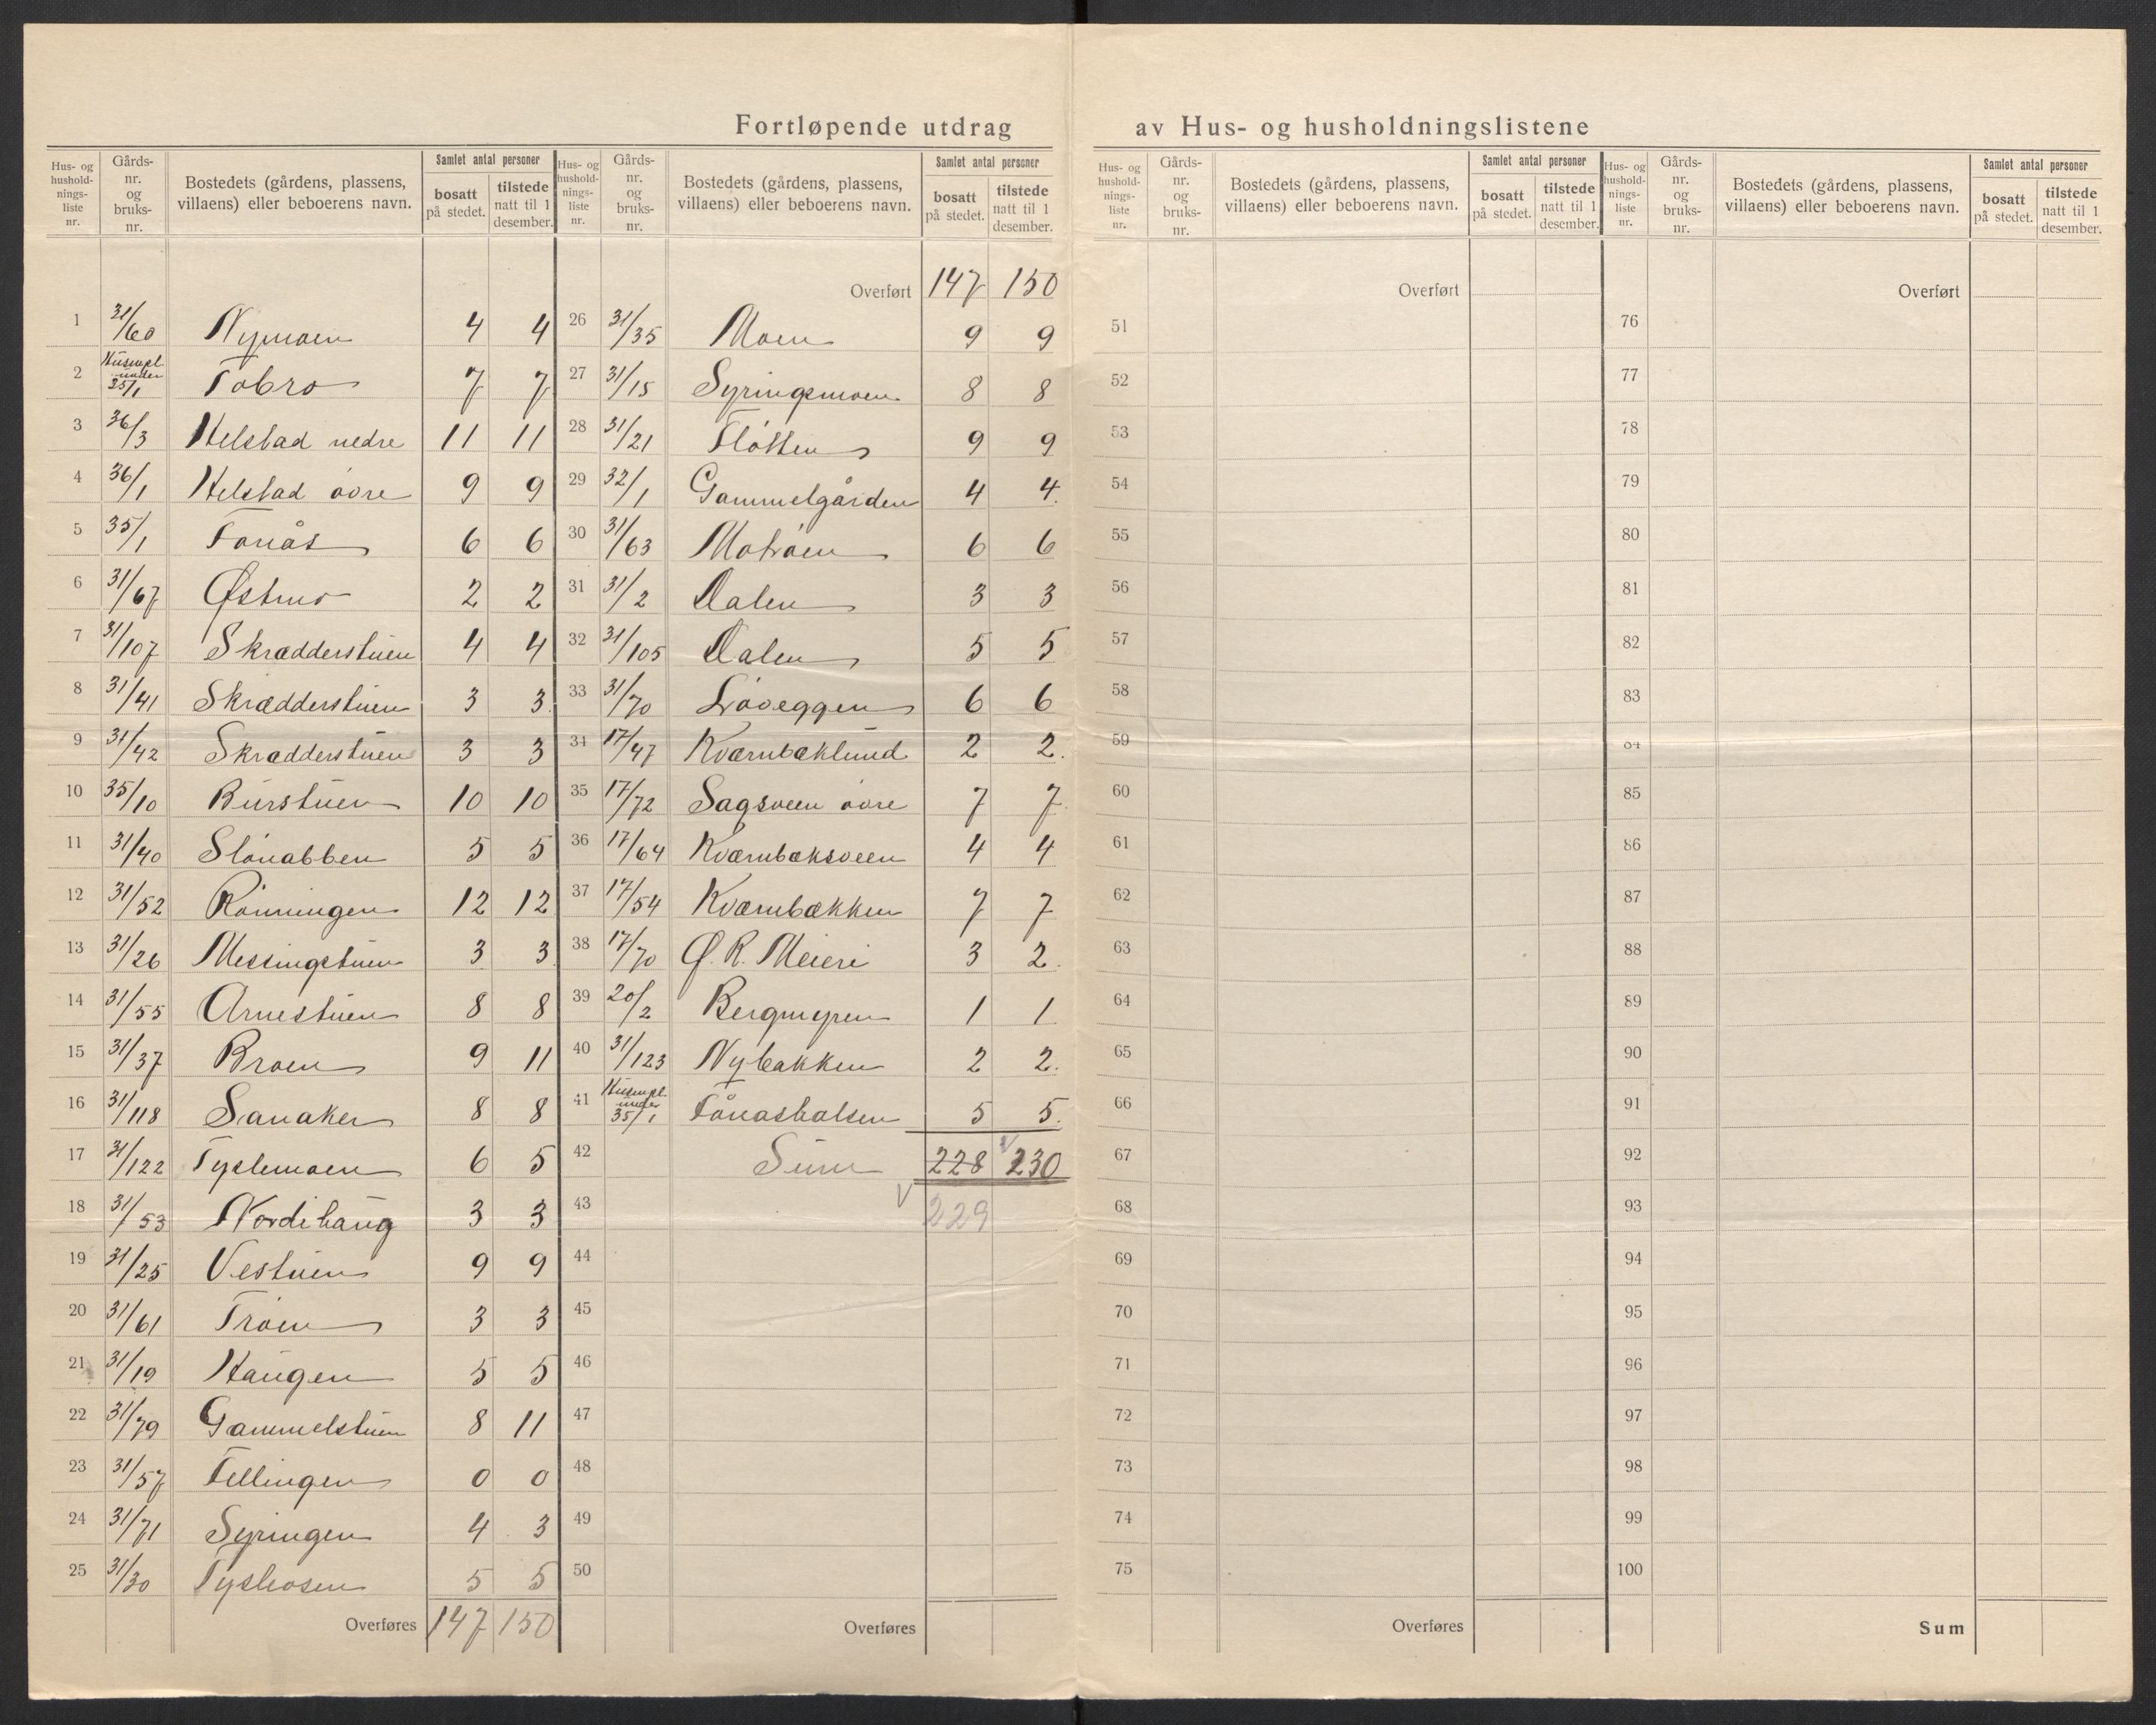 Fortløpende utdrag av Hus- og husholdningslistene
Hus- og hushold-nings-liste nr. | Gårds-nr. og bruks-nr. | Bostedets (gårdens, plassens, villaens) eller beboerens navn. | Samlet antal personer | bosatt på stedet. | tilstede natt til 1 desember.
1 31/60 Nymoen 4 4
2 Husmpl. under 25/1 Tobro 7 7
3 36/3 Helstad nedre 11 11
4 36/1 Helstad øvre 9 9
5 35/1 Tonås 6 6
6 31/67 Østmo 2 2
7 31/107 Skrædderstuen 4 4
8 31/41 Skrædderstuen 3 3
9 31/42 Skrædderstuen 3 3
10 35/10 Burstuen 10 10
11 31/40 Slonabben 5 5
12 31/52 Rønningen 12 12
13 31/26 Messingstuen 3 3
14 31/55 Arnestuen 8 8
15 31/37 Broen 9 11
16 31/118 Sanaker 8 8
17 31/122 Tyslemoen 6 5
18 31/53 Nordihaug 3 3
19 31/25 Vestuen 9 9
20 31/61 Trøen 3 3
21 31/19 Haugen 5 5
22 31/79 Gammelstuen 8 11
23 31/57 Tellingen 0 0
24 31/71 Syringen 4 3
25 31/30 Tyshosen 5 5
Overføres 147 150
Hus- og hushold-nings-liste nr. | Gårds-nr. og bruks-nr. | Bostedets (gårdens, plassens, villaens) eller beboerens navn. | Samlet antal personer | bosatt på stedet. | tilstede natt til 1 desember.
Overført 147 150
26 31/35 Moen 9 9
27 31/15 Syringsmoen 8 8
28 31/21 Fløtten 9 9
29 32/1 Gammelgården 4 4.
30 31/63 Motrøen 6 6
31 31/2 Dalen 3 3
32 31/105 Dalen 5 5
33 31/70 Løveggen 6 6
34 17/47 Kværnbæklund 2 2.
35 17/72 Sagsveen øvre 7 7.
36 17/64 Kværnbæksveen 4 4
37 17/54 Kværnbækken 7 7
38 17/70 Ø. R. Meieri 3 2.
39 20/2 Bergmyren 1 1
40 31/123 Nybakken 2 2.
41 Husmpl. under 35/1 Tånashalsen 5 5.
42 Sum 228 230
43 229
44
45
46
47
48
49
50
Overføres
Hus- og hushold-nings-liste nr. | Gårds-nr. og bruks-nr. | Bostedets (gårdens, plassens, villaens) eller beboerens navn. | Samlet antal personer | bosatt på stedet. | tilstede natt til 1 desember.
Overført
51
52
53
54
55
56
57
58
59
60
61
62
63
64
65
66
67
68
69
70
71
72
73
74
75
Overføres
Hus- og hushold-nings-liste nr. | Gårds-nr. og bruks-nr. | Bostedets (gårdens, plassens, villaens) eller beboerens navn. | Samlet antal personer | bosatt på stedet. | tilstede natt til 1 desember.
Overført
76
77
78
79
80
81
82
83
84
85
86
87
88
89
90
91
92
93
94
95
96
97
98
99
100
Sum